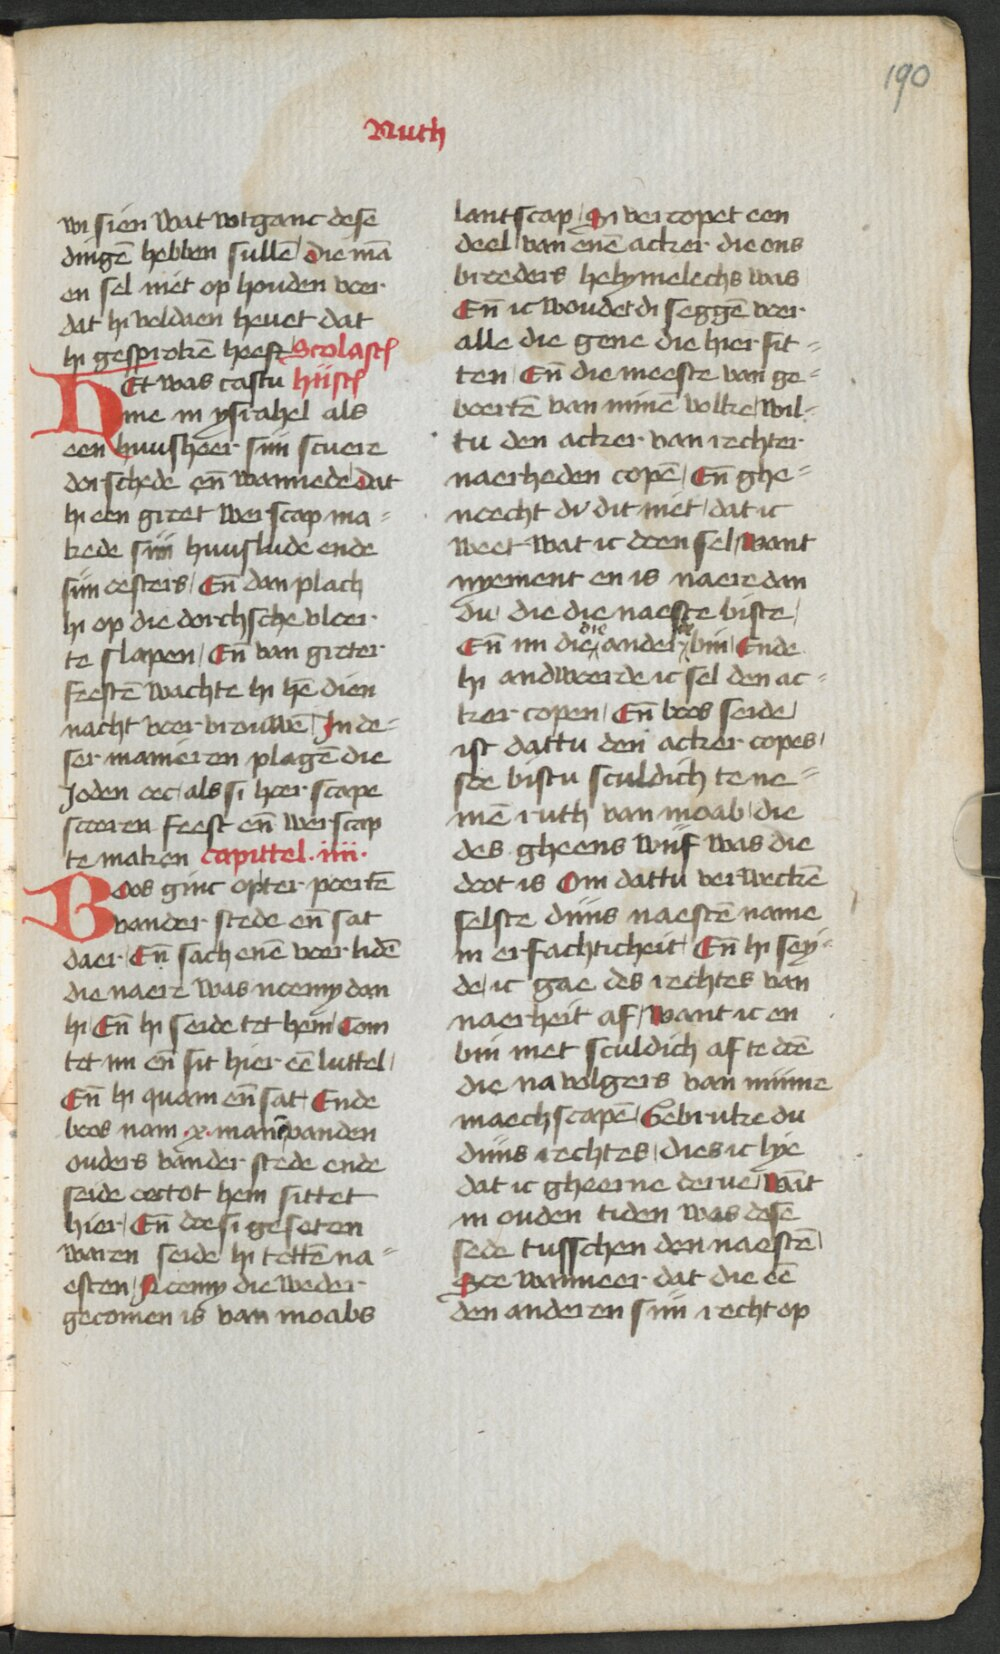 190
Ruth
wi sien wat wtganc desē
dingē hebben sullē die mā
en sel niet op houden voer
dat hi voldaen heuet dat
hi gesprokē heeft Scolasti
HEt was castu histo
me in ysrahel als
een huusheer sijn scuere
dorschede eñ wannede dat
hi een groet werscap ma=
kede sijn huuslude ende
sijn oesters Eñ dan plach
hi op die dorchsche vloer
te slapen Eñ van groter
feestē wachte hi hē dien
nacht voer vrouwē In de=
ser manieren plagē die
Joden oec als si hoer scape
scoeren feest eñ werscap
te maken capittel .iiii.
BOos ginc opter poertē
vander stede eñ sat
daer Eñ sach enē voer lidē
die naere was noemy dan
hi Eñ hi seide tot hem Com
tot mi eñ sit hier eē luttel
Eñ hi quam eñ sat Ende
boos nam .x. mannē vanden
ouders vander stede ende
seide oec tot hem sittet
hier Eñ doe si geseten
waren seide hi tottē na=
esten Noemy die weder
gecomen is van moabs
lantscap Si vercopet een
deel van enē acker die ons
broeders helymelechs was
Eñ ic woudet di seggē voer
alle die gene die hier sit=
ten Eñ die meeste van ge=
boertē van minē volke wil=
tu den acker van rechter
naerheden copē Eñ ghe=
noecht di dit niet dat ic
weet wat ic doen sel want
nyement en is naere dan
du die die naeste biste
Eñ im die die ander bin Ende
hi andwoerde ic sel den ac=
ker copen Eñ boos seide
ist dattu den acker copes
soe bistu sculdich te ne=
mē ruth van moab die
des gheens wijf was die
doot is Om dattu verweckē
selste dijns naestē name
in erfachticheit Eñ hi sey=
de ic gae des rechtes van
naerheit af want ic en
bin niet sculdich af te doē
die navolgers van mijnne
maechscapē Gebruke du
dijns rechtes dies ic lye
dat ic gheerne derue wāt
in ouden tiden was desē
sede tusschen den naestē
Soe wanneer dat die eē
den anderen sijn recht op